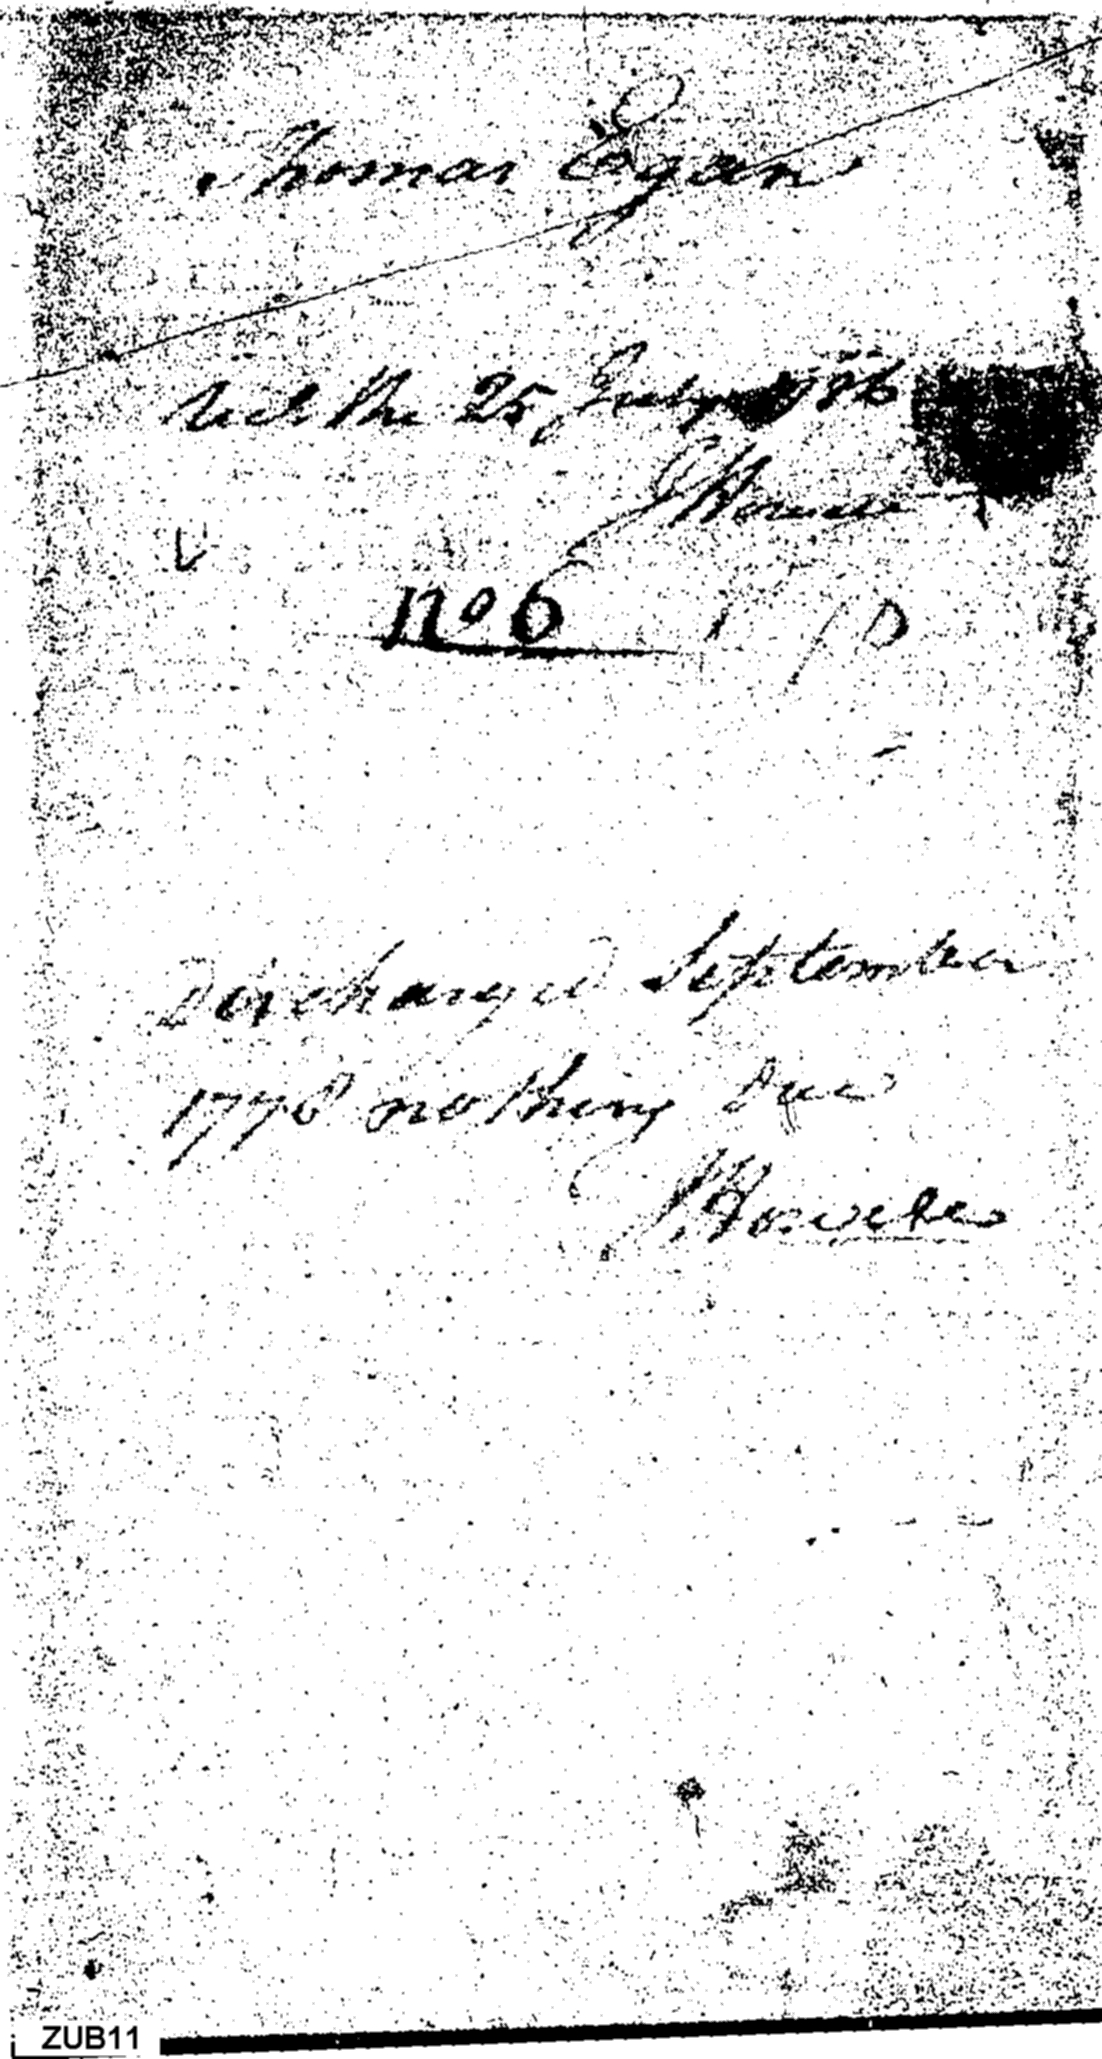 Thomas Egan
Recd the 25 July 1786
J Howell
No 6
Discharged September
1778 nothing due
J Howell
ZUB11